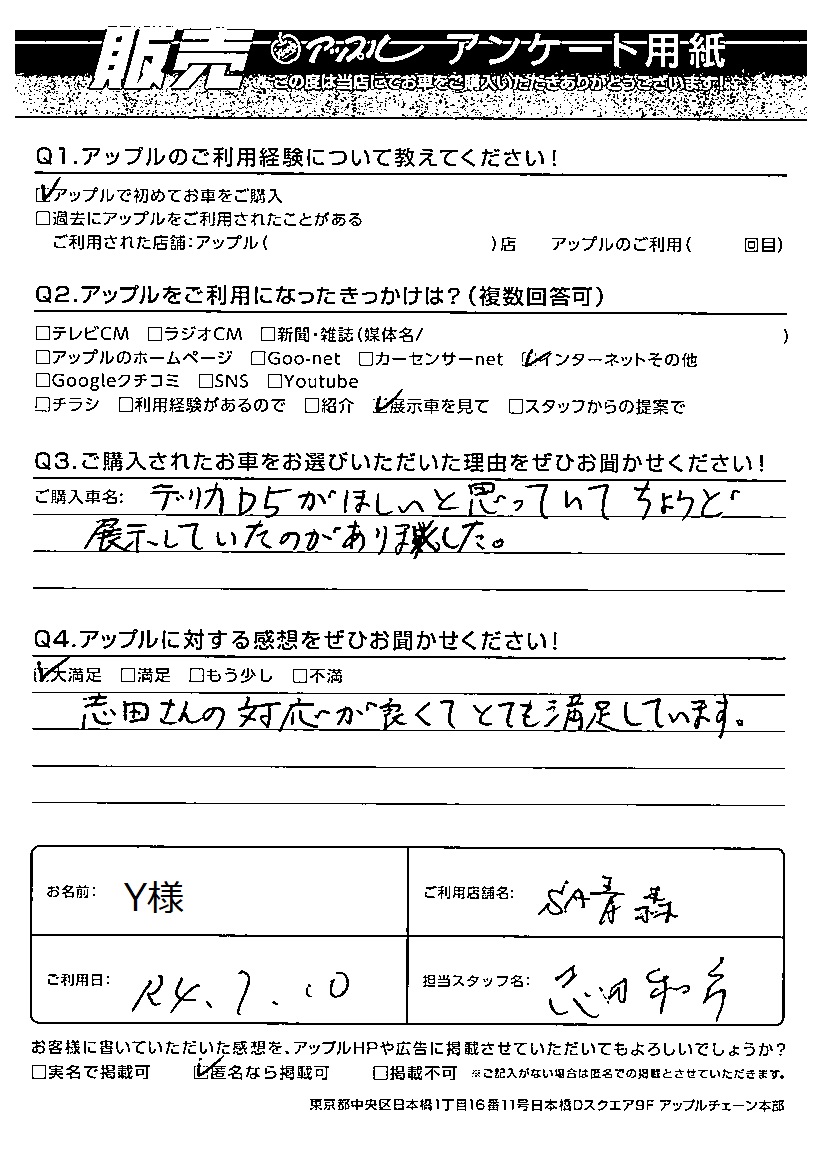 販売 アップル アンケート用紙
この度は当店にてお車をご購入いただきありがとうございます！
Q1.アップルのご利用経験について教えてください！
☑アップルで初めてお車をご購入
□過去にアップルをご利用されたことがある
ご利用された店舗：アップル（　　　）店　アップルのご利用（　　　回目）
Q2.アップルをご利用になったきっかけは？（複数回答可）
□テレビCM □ラジオCM □新聞・雑誌（媒体名/　　　）
□アップルのホームページ □Goo-net □カーセンサーnet ☑インターネットその他
□Googleクチコミ □SNS □Youtube
□チラシ □利用経験があるので □紹介 ☑展示車を見て □スタッフからの提案で
Q3.ご購入されたお車をお選びいただいた理由をぜひお聞かせください！
ご購入車名： デリカD5がほしいと思っていてちょうど
展示していたのがありました。
Q4.アップルに対する感想をぜひお聞かせください！
☑大満足 □満足 □もう少し □不満
志田さんの対応が良くてとても満足しています。
お名前： Y様
ご利用店舗名： SA青森
ご利用日： R4.7.10
担当スタッフ名： 志田
お客様に書いていただいた感想を、アップルHPや広告に掲載させていただいてもよろしいでしょうか？
□実名で掲載可 ☑匿名なら掲載可 □掲載不可 ※ご記入がない場合は匿名での掲載とさせていただきます。
東京都中央区日本橋1丁目16番11号日本橋Dスクエア9F アップルチェーン本部